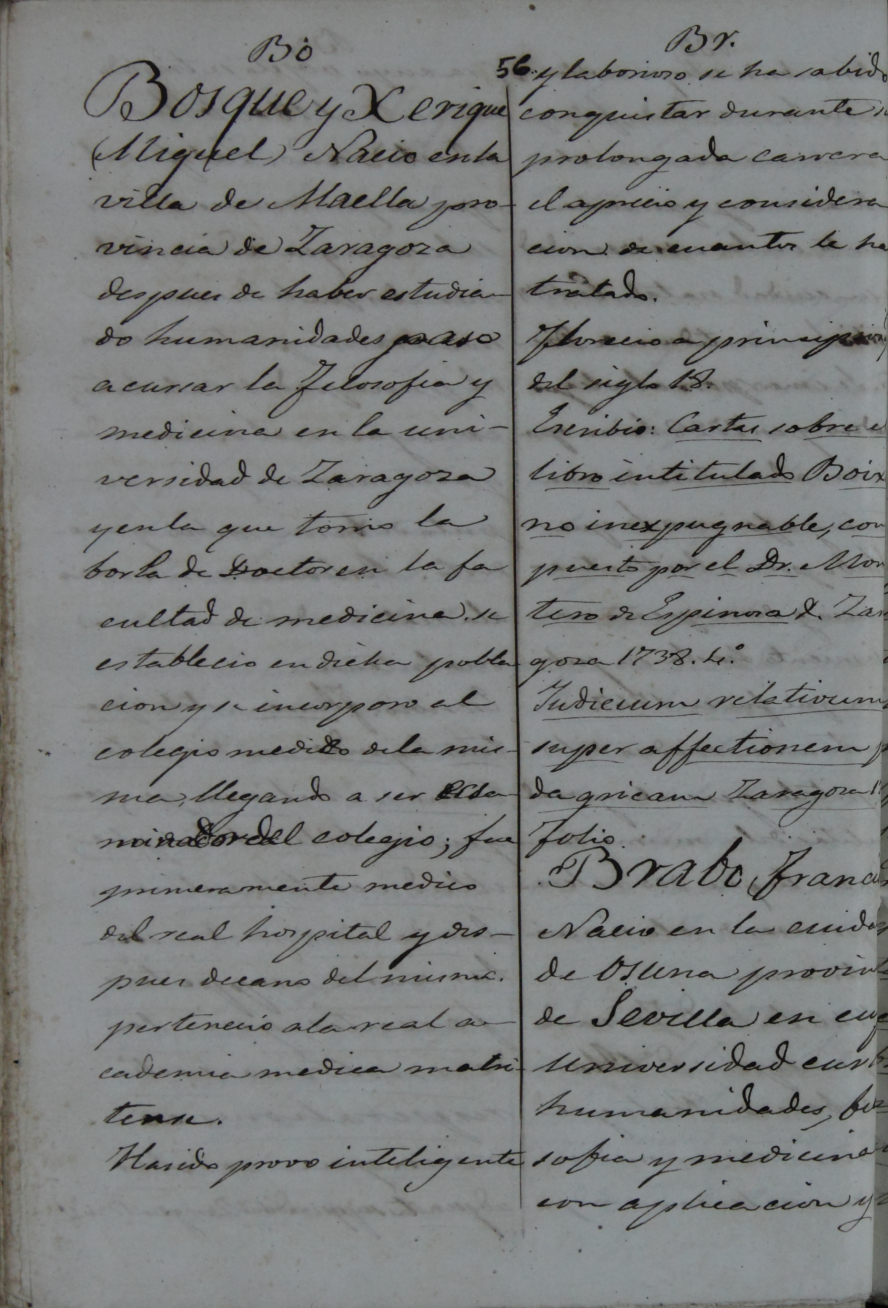 Bo
Bosque y Xerique
(Miguel) Nacio en la
villa de Maella pro-
vincia de Zaragoza
despues de haber estudia-
do humanidades paso
a cursar la filosofia y
medicina en la uni-
versidad de Zaragoza
y en la que tomo la
borla de Doctor en la fa
cultad de medicina. se
establecio en dicha pobla
cion y se incorporo al
colegio medico de la mis-
ma, llegando a ser essa-
minador del colegio; fue
primeramente medico
del real hospital y des-
pues decano del mismo.
pertenecio a la real a-
cademia medica matri
tense.
Ha sido provo inteligente
56
Br.
y laborioso se ha sabido
conquistar durante s
prolongada carrera
el aprecio y considera
cion de cuantos le ha
tratado.
Florecio a principios
del siglo 18.
Escribio: Cartas sobre e
libro intitulado Boix
no inexpugnable, com
puesto por el Dr. Mon
tero de Espinosa &. Zar
goza 1738. 4.º
Judicium relativum
super affectionem p
dagricam Zaragoza 1
folio.
Brabo, Franci
Nacio en la ciudad
de Osuna provinc
de Sevilla en cuy
universidad curs
humanidades, filo
sofia y medicina
con aplicacion y